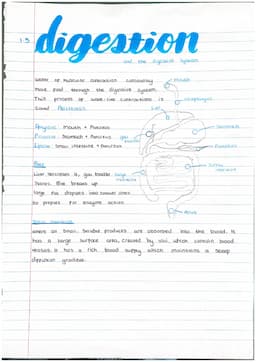 1.5
digestion
and the digestive system
wave of muscular contraction
move food through the digestive system
This process of wave-like contractions is
called Peristalsis
Mouth
oesophagus
Liver
Amylase: Mouth + Pancreas
Protease: Stomach + Pancreas
Lipase: Small intestine + Pancreas
gall bladder
Stomach
Pancreas
Bile
Liver secretes it, gall bladder
large intestine
small intestine
Stores. Bile breaks up
large fat droplets into smaller ones
to prepare for enzyme action.
Anus
Small intestine
where all small, soluble products are absorbed into the blood. It
has a large surface area, created by villi, which contain blood
vessels. It has a rich blood supply which maintains a steep
diffusion gradient.